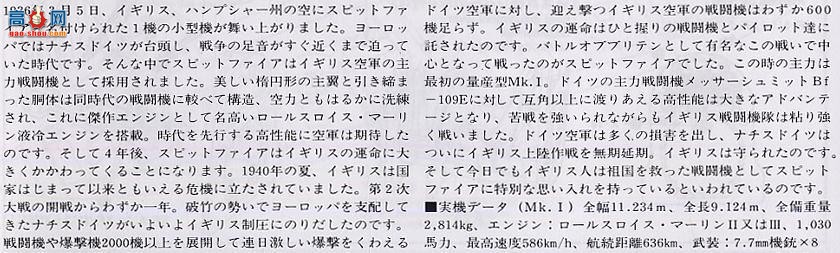 高网
www.gao-shou.com
1936年3月5日、イギリス、ハンプシャー州の空にスピットファ
付けられた1機の小型機が舞い上がりました。ヨーロッ
パではナチスドイツが台頭し、戦争の足音がすぐ近くまで迫って
いた時代です。そんな中でスピットファイアはイギリス空軍の主
力戦闘機として採用されました。美しい楕円形の主翼と引き締ま
った胴体は同時代の戦闘機に較べて構造、空力ともはるかに洗練
され、これに傑作エンジンとして名高いロールスロイス・マーリ
ン液冷エンジンを搭載。時代を先行する高性能に空軍は期待した
のです。そして4年後、スピットファイアはイギリスの運命に大
きくかかわってくることになります。1940年の夏、イギリスは国
家はじまって以来ともいえる危機に立たされていました。第2次
大戦の開戦からわずか一年。破竹の勢いでヨーロッパを支配して
きたナチスドイツがいよいよイギリス制圧にのりだしたのです。
戦闘機や爆撃機2000機以上を展開して連日激しい爆撃をくわえる
ドイツ空軍に対し、迎え撃つイギリス空軍の戦闘機はわずか600
機足らず。イギリスの運命はひと握りの戦闘機とパイロット達に
託されたのです。バトルオブブリテンとして有名なこの戦いで中
心となって戦ったのがスピットファイアでした。この時の主力は
最初の量産型Mk.I。ドイツの主力戦闘機メッサーシュミットBf
-109Eに対して互角以上に渡りあえる高性能は大きなアドバンテ
ージとなり、苦戦を強いられながらもイギリス戦闘機隊は粘り強
く戦いました。ドイツ空軍は多くの損害を出し、ナチスドイツは
ついにイギリス上陸作戦を無期延期。イギリスは守られたのです。
そして今日でもイギリス人は祖国を救った戦闘機としてスピット
ファイアに特別な思い入れを持っているといわれているのです。
■実機データ（Mk.I）全幅11.234m、全長9.124m、全備重量
2,814kg、エンジン：ロールスロイス・マーリンII又はIII、1,030
馬力、最高速度586km/h、航続距離636km、武装：7.7mm機銃×8